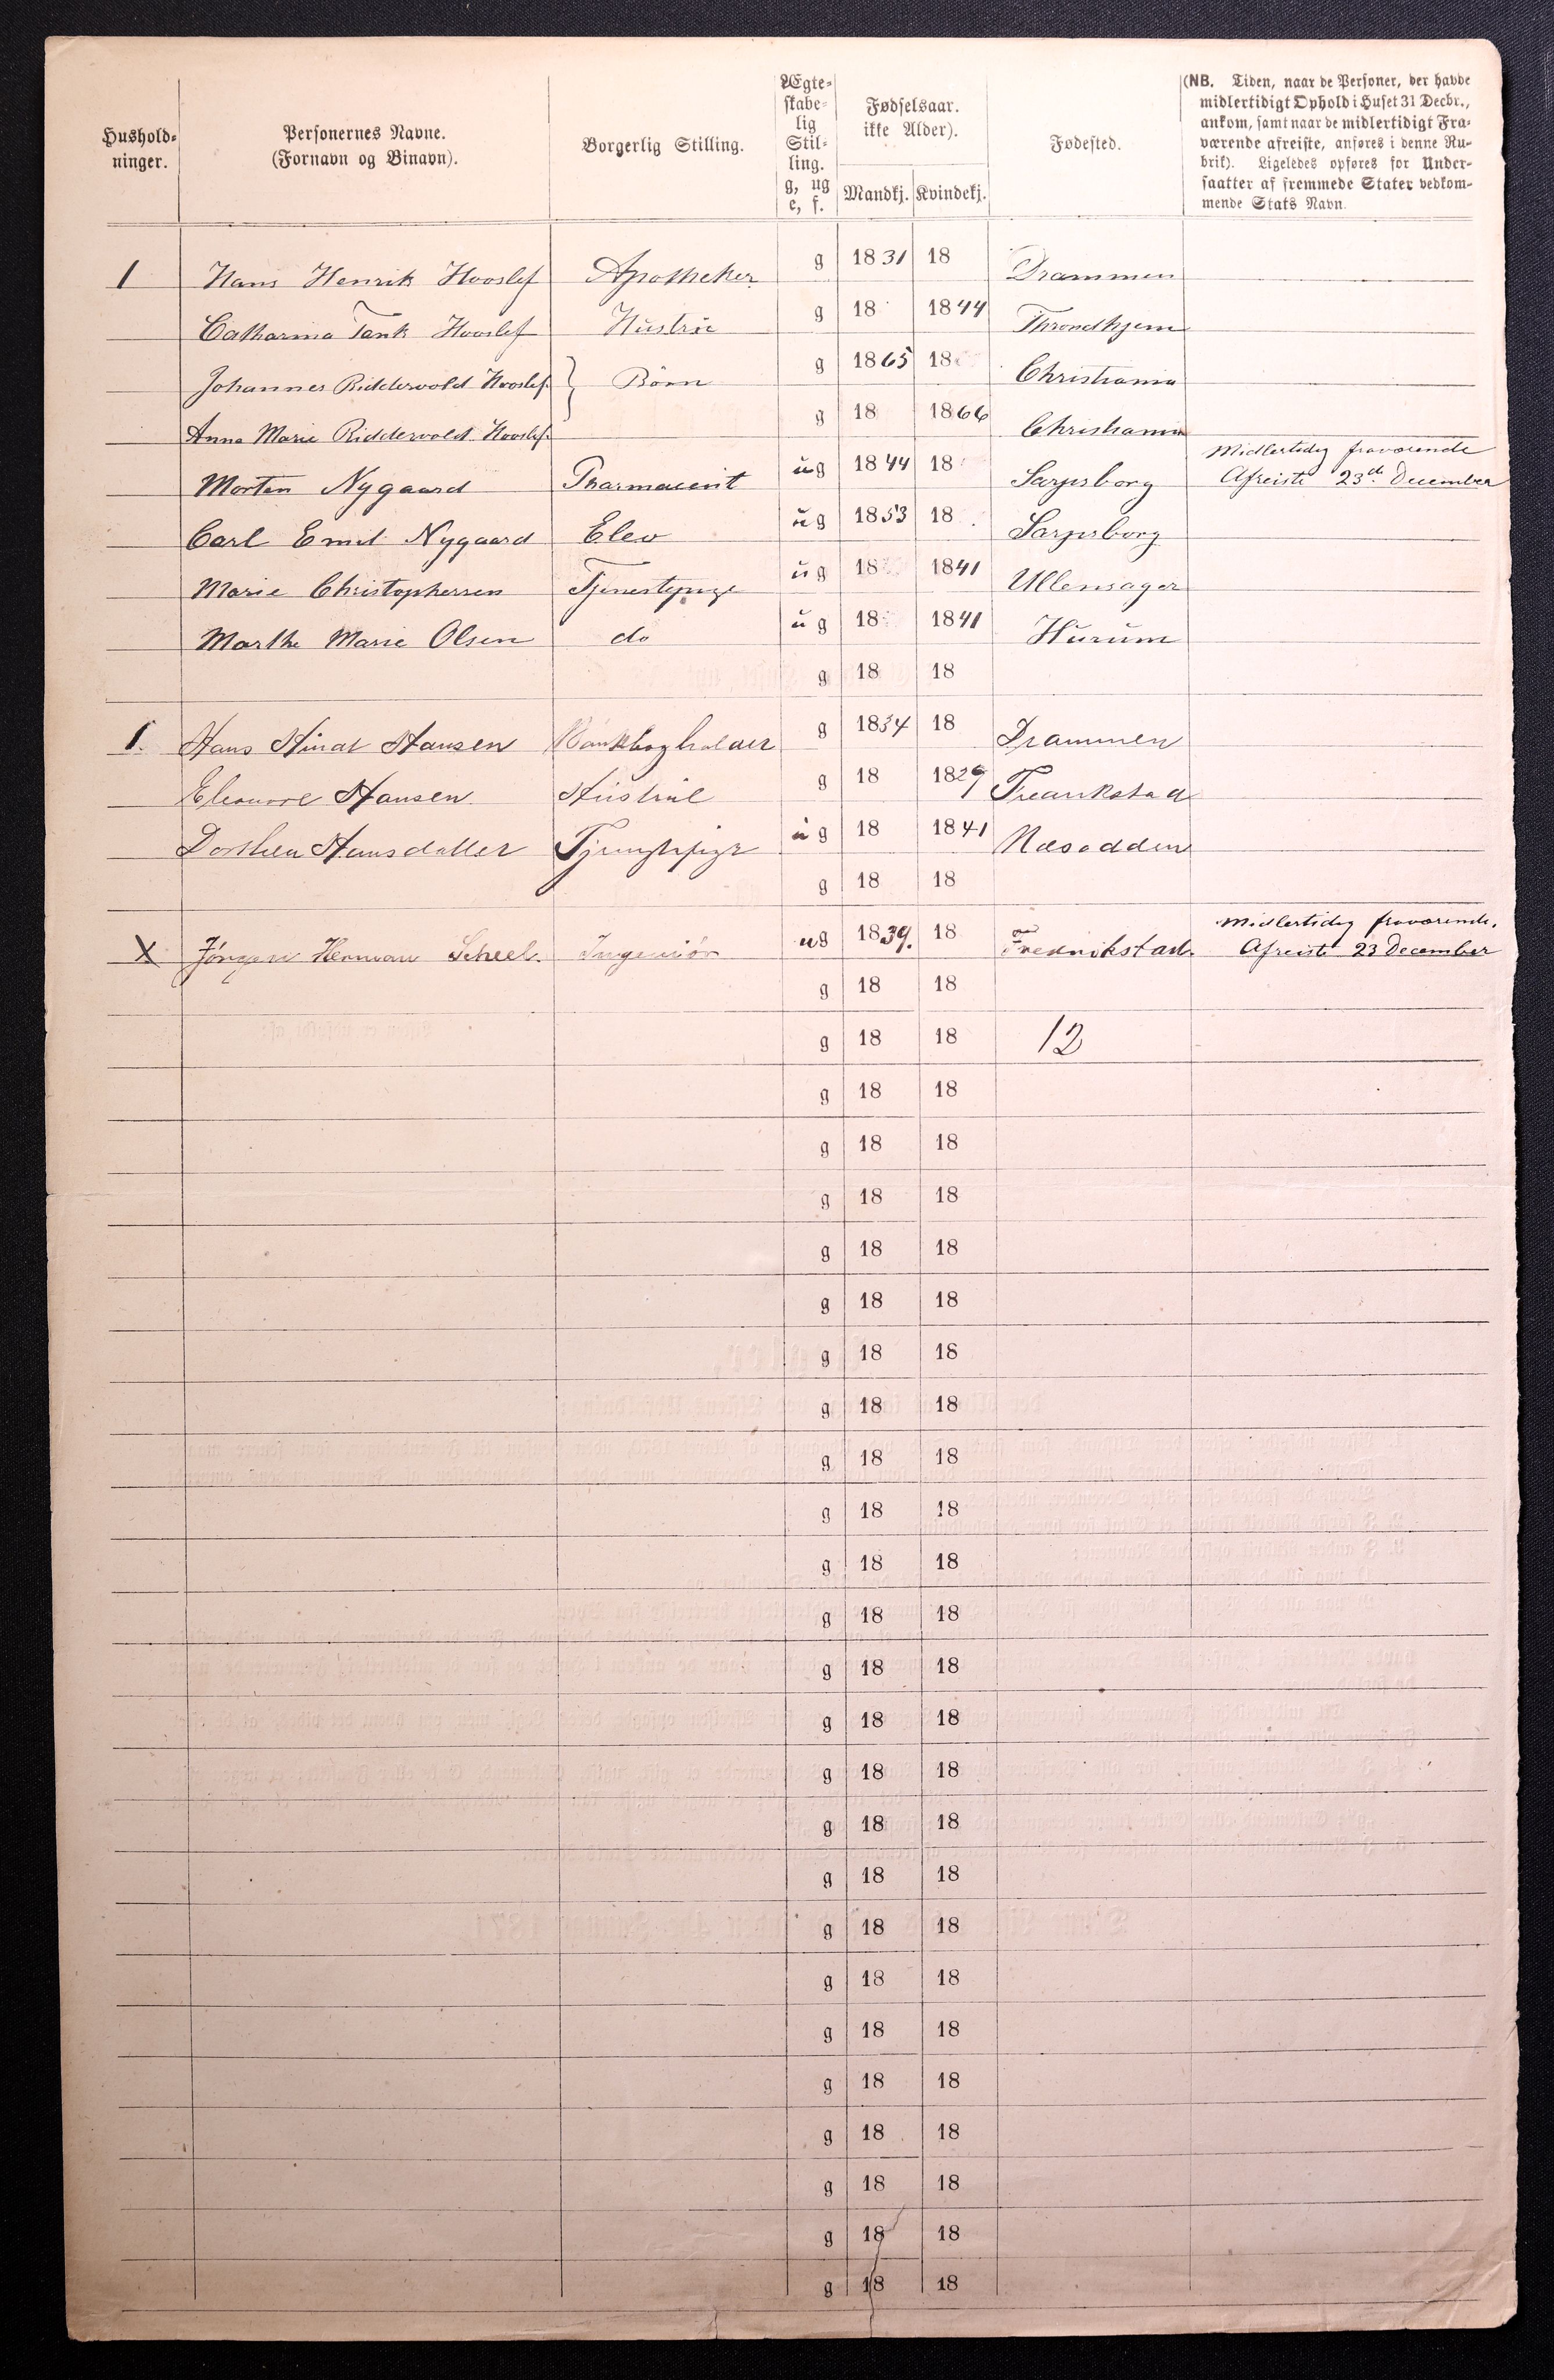 Hushold-
ninger.
Personernes Navne.
(Fornavn og Binavn).
Borgerlig Stilling.
Ægte-
skabe-
lig
Stil-
ling.
g, ug
e, f.
Fødselsaar.
ikke Alder).
Mandkj. Kvindekj.
Fødested.
(NB. Tiden, naar de Personer, der havde
midlertidigt Ophold i Huset 31 Decbr.,
ankom, samt naar de midlertidigt Fra-
værende afreiste, anføres i denne Ru-
brik). Ligeledes opføres for Under-
saatter af fremmede Stater vedkom-
mende Stats Navn.
1 Hans Henrik Hvoslef Apotheker g 1831 18 Drammen
Catharina Tank Hvoslef Hustrü g 18 1844 Throndhjem
Johannes Riddervold Hvoslef } Börn g 1865 18 Christiania
Anna Marie Riddervold Hvoslef g 18 1866 Christiania
Midlertidig fraværende
Morten Nygaard Pharmaceüt üg 1844 18 Sarpsborg Afreiste 23d. December
Carl Emil Nygaard Elev üg 1853 18 Sarpsborg
Marie Christophersen Tjenestepige üg 18 1841 Ullensager
Marthe Marie Olsen do üg 18 1841 Hurum
g 18 18
1. Hans Hansen Bankbogholder g 1834 18 Drammen
Eleonore Hansen Hustrue g 18 1829 Fredrikstad
Dorthea Hansdatter ug 18 1841 Næsodden
g 18 18
Midlertidig fraværende.
X Jörgen Herman Scheel. Ingeniör ug 1839. 18 Fredrikstad. Afreiste 23 December
g 18 18
g 18 18 12
g 18 18
g 18 18
g 18 18
g 18 18
g 18 18
g 18 18
g 18 18
g 18 18
g 18 18
g 18 18
g 18 18
g 18 18
g 18 18
g 18 18
g 18 18
g 18 18
g 18 18
g 18 18
g 18 18
g 18 18
g 18 18
g 18 18
g 18 18
g 18 18